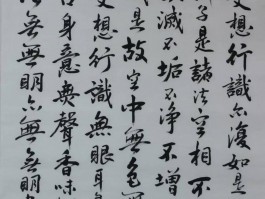 受想行識亦復如是
子是諸法空相不
滅不垢不淨不增
是故空中無色
受想行識無眼耳
舌身意聲香味
無無明亦無無明